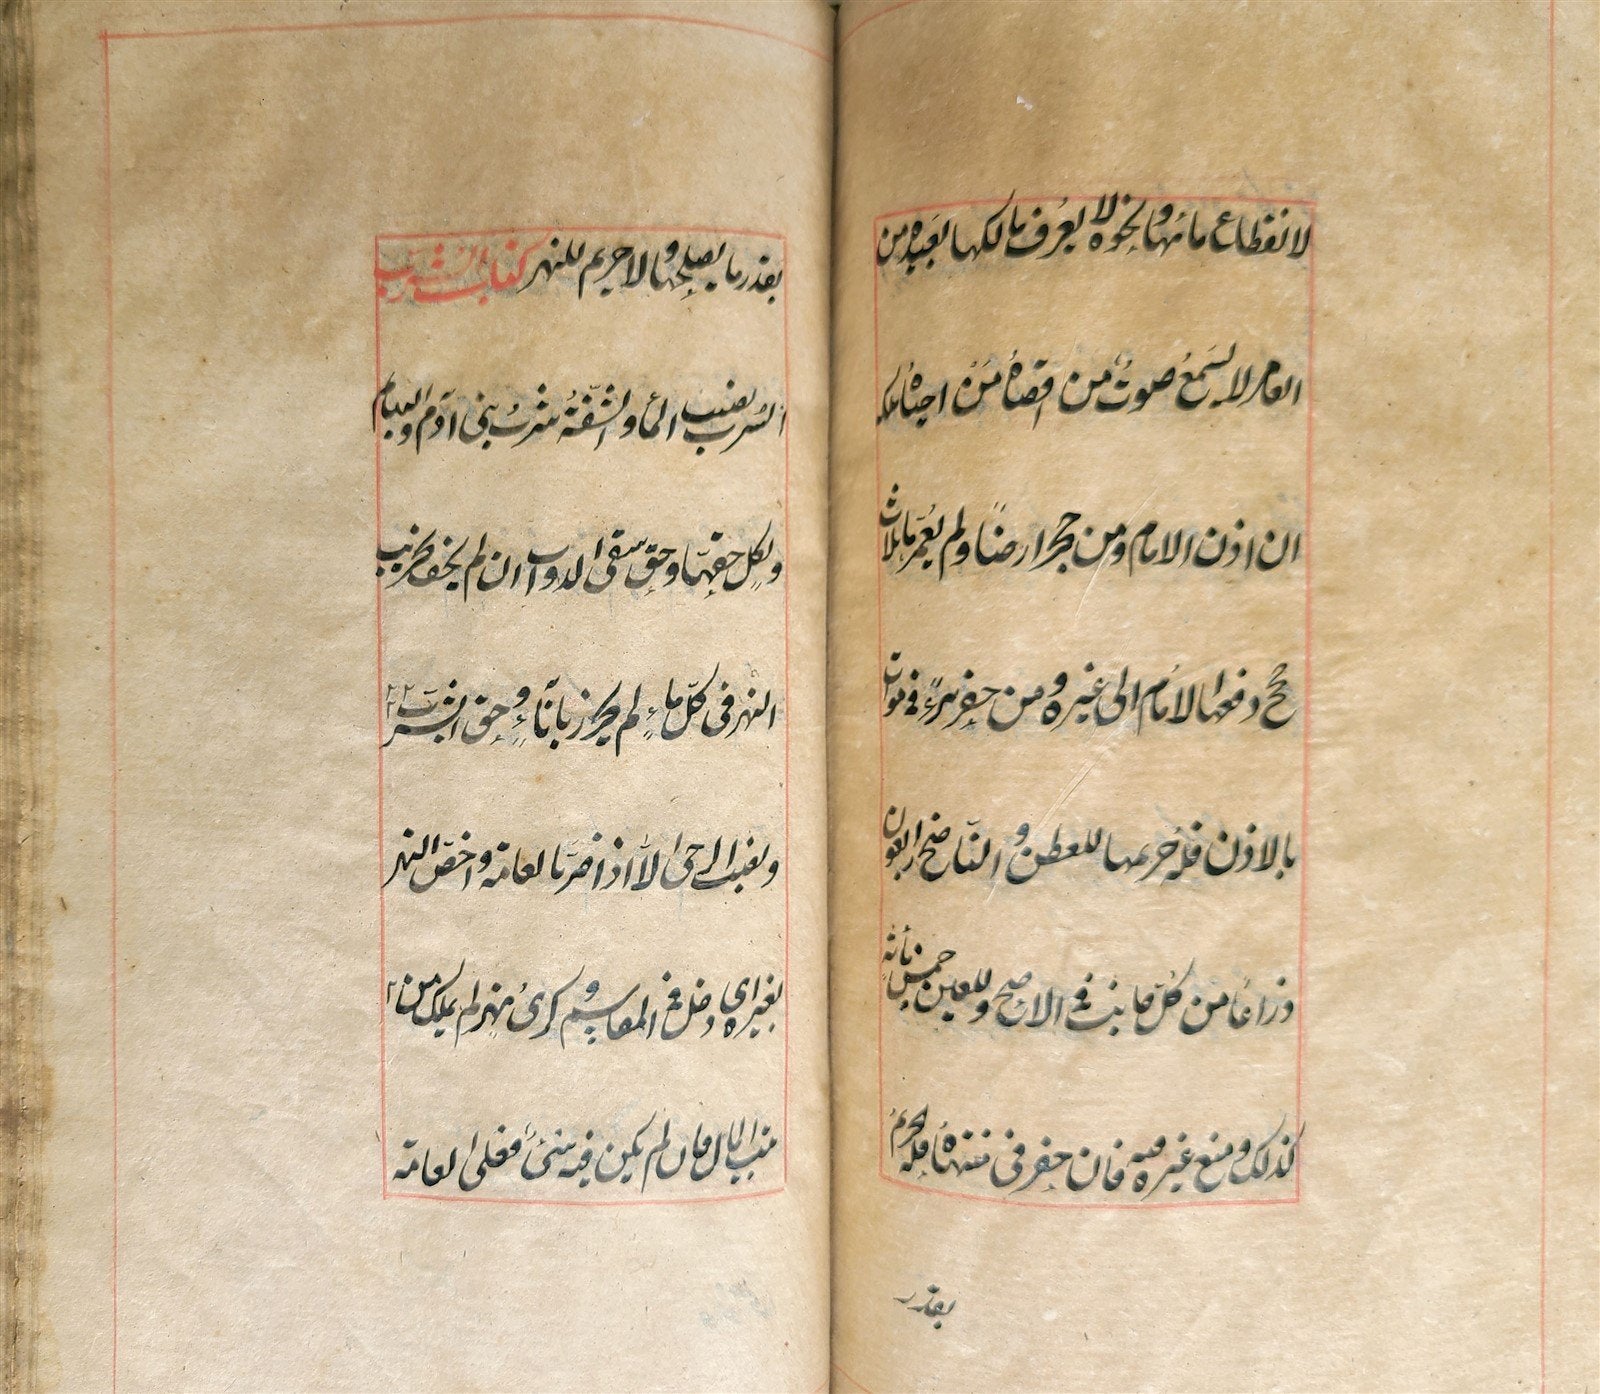 لانقطاع مائها ونحوه لا يعرف مالكها بعيدة من
العامر لا يسمع صوت من اقصاه من احياه ملكه
ان اذن الامام ومن حجر ارضا ولم يعمرها ثلاث
حج دفعها الامام الى غيره ومن حفر بئرا في موات
بالاذن فله حريمها للعطن و الناضح اربعون
ذراعا من كل جانب في الاصح وللعين خمس مائة
كذلك ومنع غيره منه فان حفر في منتهاه فله الحريم
بقدر
بقدر ما يصلحها ولا حريم للنهر كتاب الشرب
الشرب نصيب الماء والشفة شرب بني آدم والبهايم
ولكل حقهما وحق سقى الدواب ان لم يخف تخريب
النهر في كل ماء لم يحرز باناء وحق الشرب
الا اذا اضر بالعامة واخص النهر
بغيره دخل في المقاسم و كرى نهر لم يملك من
بيت المال فان لم يكن فيه شئ فعلى العامة